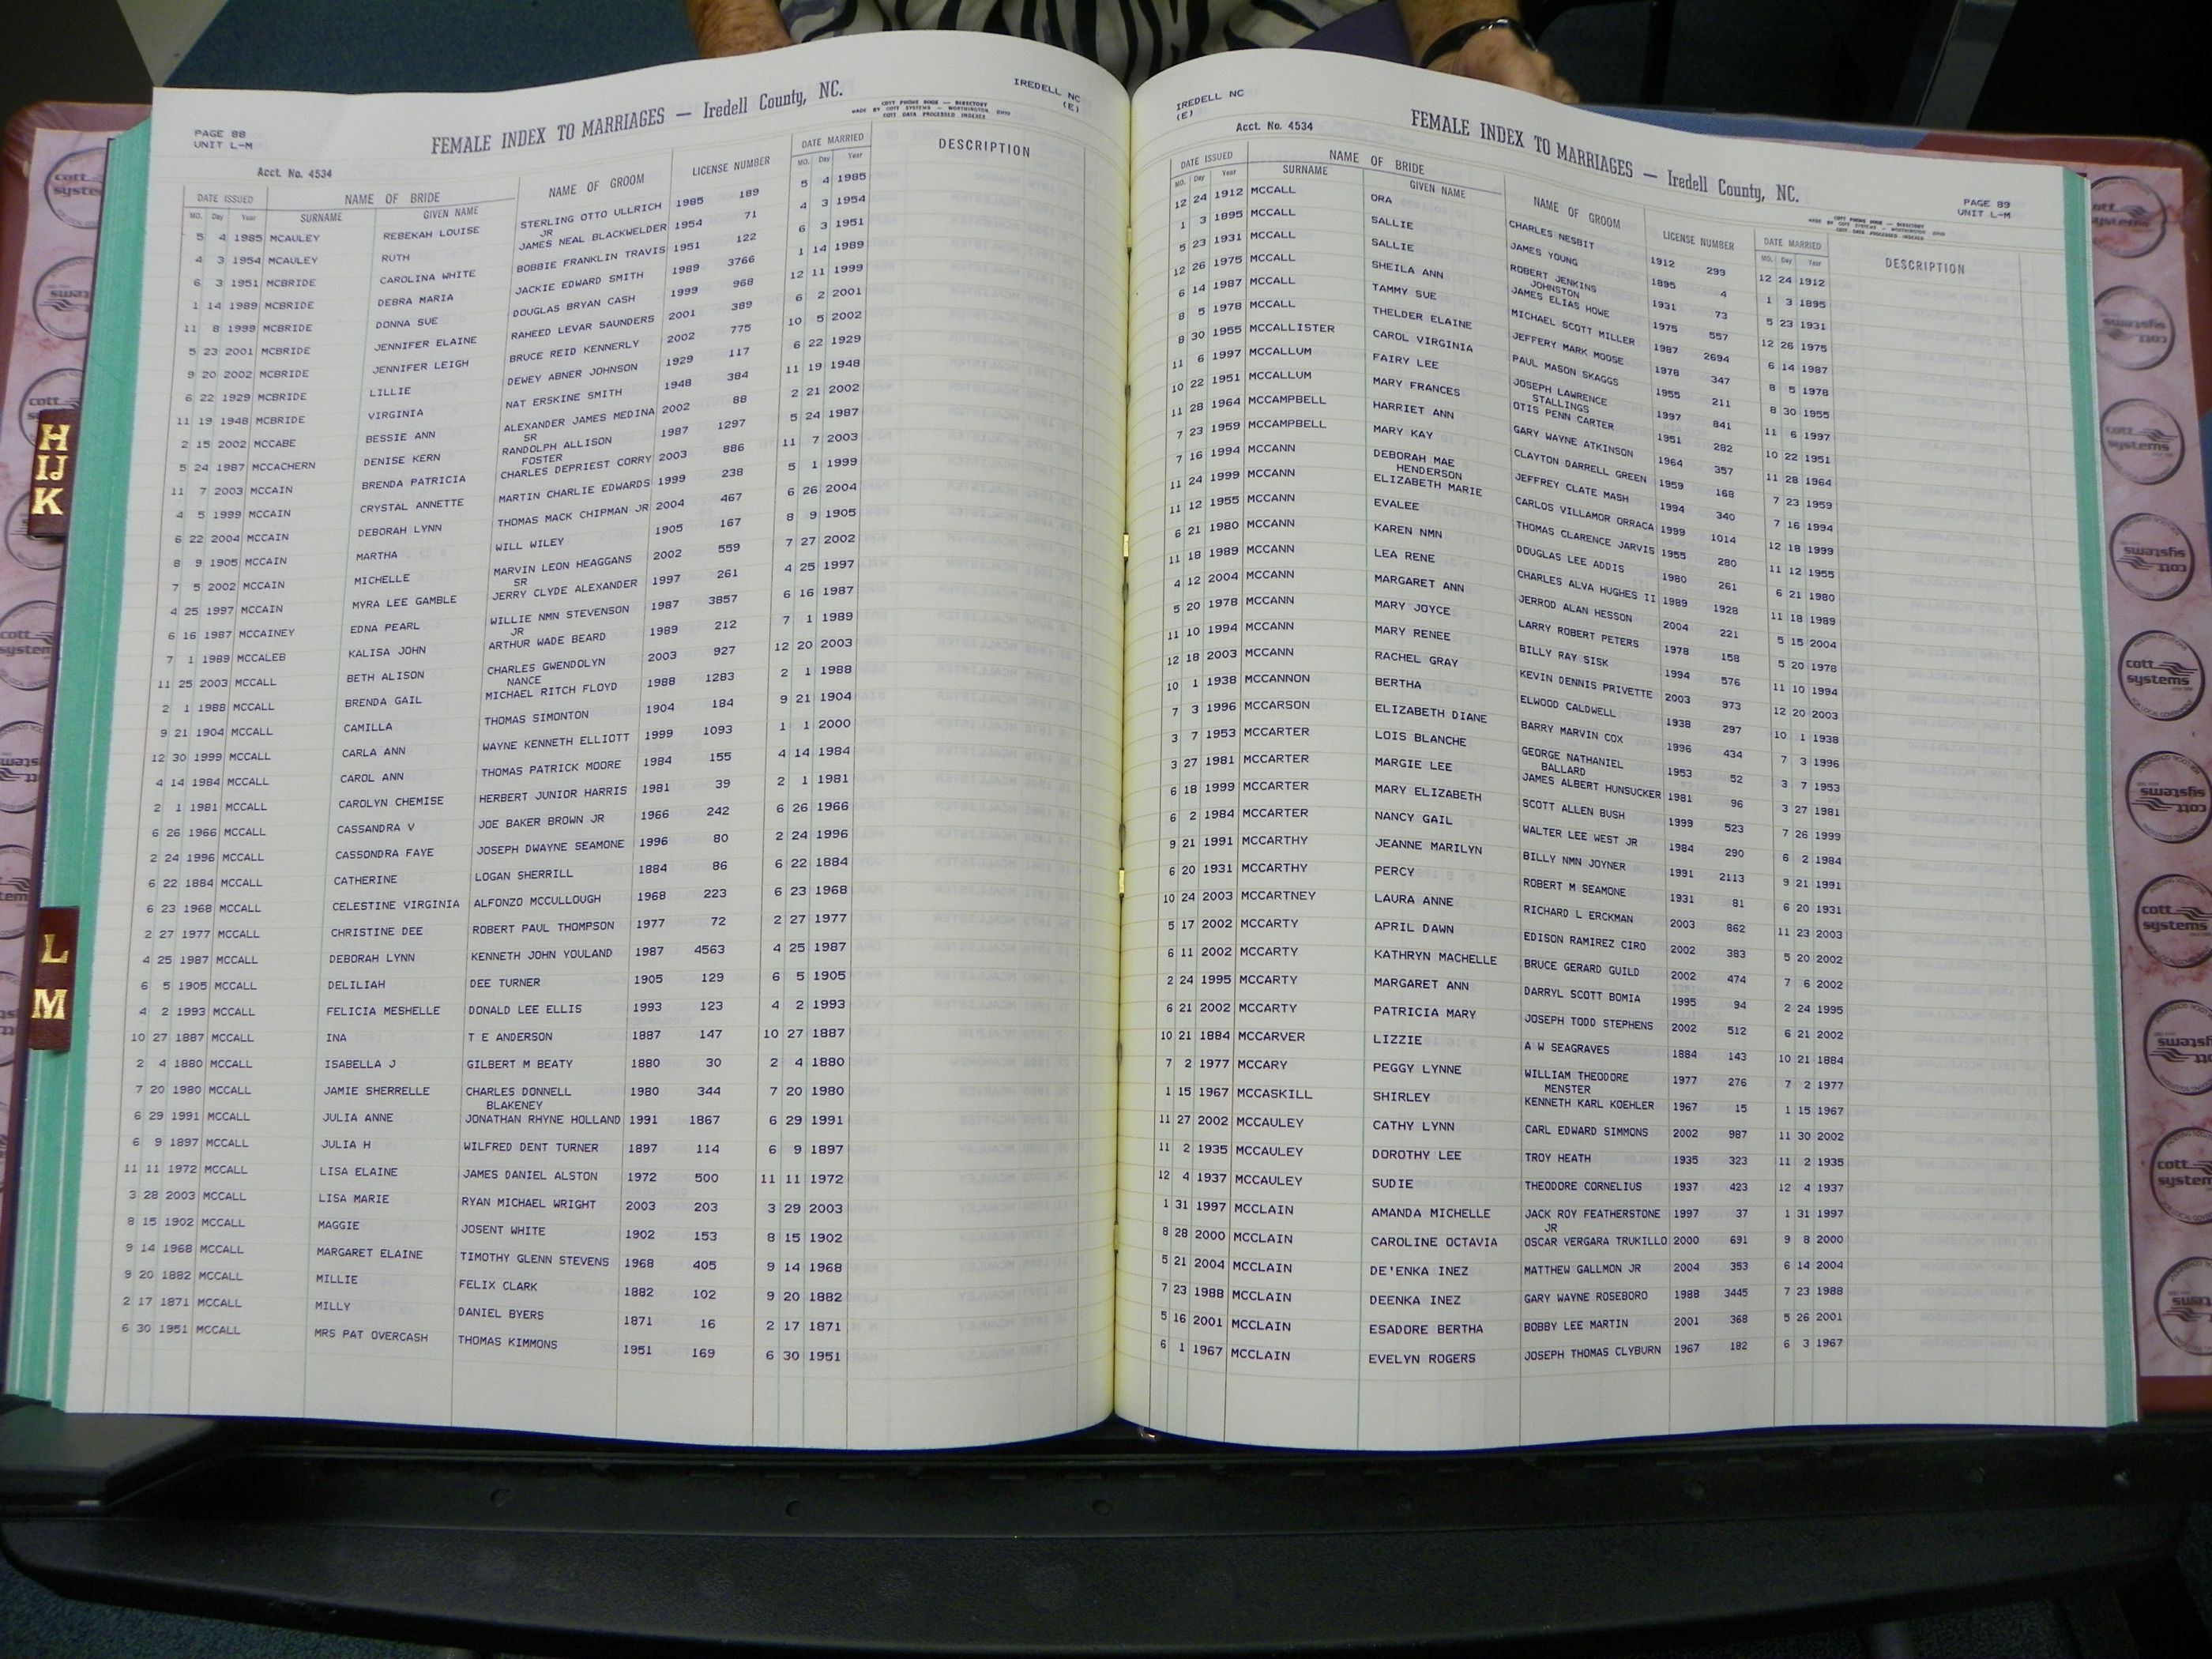 PAGE 88
UNIT L-M
FEMALE INDEX TO MARRIAGES — Iredell County, NC.
COTT PHONE BOOK — DIRECTORY
MADE BY COTT SYSTEMS — WORTHINGTON, OHIO
COTT DATA PROCESSED INDEXES
IREDELL NC
(E)
Acct. No. 4534
DATE ISSUED NAME OF BRIDE NAME OF GROOM LICENSE NUMBER DATE MARRIED DESCRIPTION
MO. Day Year SURNAME GIVEN NAME MO. Day Year
5 4 1985 MCAULEY REBEKAH LOUISE STERLING OTTO ULLRICH 1985 189 5 4 1985
JR
4 3 1954 MCAULEY RUTH JAMES NEAL BLACKWELDER 1954 71 4 3 1954
6 3 1951 MCBRIDE CAROLINA WHITE BOBBIE FRANKLIN TRAVIS 1951 122 6 3 1951
1 14 1989 MCBRIDE DEBRA MARIA JACKIE EDWARD SMITH 1989 3766 1 14 1989
11 8 1999 MCBRIDE DONNA SUE DOUGLAS BRYAN CASH 1999 968 12 11 1999
5 23 2001 MCBRIDE JENNIFER ELAINE RAHEED LEVAR SAUNDERS 2001 389 6 2 2001
9 20 2002 MCBRIDE JENNIFER LEIGH BRUCE REID KENNERLY 2002 775 10 5 2002
6 22 1929 MCBRIDE LILLIE DEWEY ABNER JOHNSON 1929 117 6 22 1929
11 19 1948 MCBRIDE VIRGINIA NAT ERSKINE SMITH 1948 384 11 19 1948
2 15 2002 MCCABE BESSIE ANN ALEXANDER JAMES MEDINA 2002 88 2 21 2002
SR
5 24 1987 MCCACHERN DENISE KERN RANDOLPH ALLISON 1987 1297 5 24 1987
FOSTER
11 7 2003 MCCAIN BRENDA PATRICIA CHARLES DEPRIEST CORRY 2003 886 11 7 2003
4 5 1999 MCCAIN CRYSTAL ANNETTE MARTIN CHARLIE EDWARDS 1999 238 5 1 1999
6 22 2004 MCCAIN DEBORAH LYNN THOMAS MACK CHIPMAN JR 2004 467 6 26 2004
8 9 1905 MCCAIN MARTHA WILL WILEY 1905 167 8 9 1905
7 5 2002 MCCAIN MICHELLE MARVIN LEON HEAGGANS 2002 559 7 27 2002
SR
4 25 1997 MCCAIN MYRA LEE GAMBLE JERRY CLYDE ALEXANDER 1997 261 4 25 1997
6 16 1987 MCCAINEY EDNA PEARL WILLIE NMN STEVENSON 1987 3857 6 16 1987
JR
7 1 1989 MCCALEB KALISA JOHN ARTHUR WADE BEARD 1989 212 7 1 1989
11 25 2003 MCCALL BETH ALISON CHARLES GWENDOLYN 2003 927 12 20 2003
NANCE
2 1 1988 MCCALL BRENDA GAIL MICHAEL RITCH FLOYD 1988 1283 2 1 1988
9 21 1904 MCCALL CAMILLA THOMAS SIMONTON 1904 184 9 21 1904
12 30 1999 MCCALL CARLA ANN WAYNE KENNETH ELLIOTT 1999 1093 1 1 2000
4 14 1984 MCCALL CAROL ANN THOMAS PATRICK MOORE 1984 155 4 14 1984
2 1 1981 MCCALL CAROLYN CHEMISE HERBERT JUNIOR HARRIS 1981 39 2 1 1981
6 26 1966 MCCALL CASSANDRA V JOE BAKER BROWN JR 1966 242 6 26 1966
2 24 1996 MCCALL CASSONDRA FAYE JOSEPH DWAYNE SEAMONE 1996 80 2 24 1996
6 22 1884 MCCALL CATHERINE LOGAN SHERRILL 1884 86 6 22 1884
6 23 1968 MCCALL CELESTINE VIRGINIA ALFONZO MCCULLOUGH 1968 223 6 23 1968
2 27 1977 MCCALL CHRISTINE DEE ROBERT PAUL THOMPSON 1977 72 2 27 1977
4 25 1987 MCCALL DEBORAH LYNN KENNETH JOHN YOULAND 1987 4563 4 25 1987
6 5 1905 MCCALL DELILIAH DEE TURNER 1905 129 6 5 1905
4 2 1993 MCCALL FELICIA MESHELLE DONALD LEE ELLIS 1993 123 4 2 1993
10 27 1887 MCCALL INA T E ANDERSON 1887 147 10 27 1887
2 4 1880 MCCALL ISABELLA J GILBERT M BEATY 1880 30 2 4 1880
7 20 1980 MCCALL JAMIE SHERRELLE CHARLES DONNELL 1980 344 7 20 1980
BLAKENEY
6 29 1991 MCCALL JULIA ANNE JONATHAN RHYNE HOLLAND 1991 1867 6 29 1991
6 9 1897 MCCALL JULIA H WILFRED DENT TURNER 1897 114 6 9 1897
11 11 1972 MCCALL LISA ELAINE JAMES DANIEL ALSTON 1972 500 11 11 1972
3 28 2003 MCCALL LISA MARIE RYAN MICHAEL WRIGHT 2003 203 3 29 2003
8 15 1902 MCCALL MAGGIE JOSENT WHITE 1902 153 8 15 1902
9 14 1968 MCCALL MARGARET ELAINE TIMOTHY GLENN STEVENS 1968 405 9 14 1968
9 20 1882 MCCALL MILLIE FELIX CLARK 1882 102 9 20 1882
2 17 1871 MCCALL MILLY DANIEL BYERS 1871 16 2 17 1871
6 30 1951 MCCALL MRS PAT OVERCASH THOMAS KIMMONS 1951 169 6 30 1951
H
IJ
K
L
M
IREDELL NC
(E)
Acct. No. 4534
FEMALE INDEX TO MARRIAGES — Iredell County, NC.
COTT PHONE BOOK — DIRECTORY
MADE BY COTT SYSTEMS — WORTHINGTON, OHIO
COTT DATA PROCESSED INDEXES
PAGE 89
UNIT L-M
DATE ISSUED NAME OF BRIDE NAME OF GROOM LICENSE NUMBER DATE MARRIED DESCRIPTION
MO. Day Year SURNAME GIVEN NAME MO. Day Year
12 24 1912 MCCALL ORA CHARLES NESBIT 1912 299 12 24 1912
1 3 1895 MCCALL SALLIE JAMES YOUNG 1895 4 1 3 1895
5 23 1931 MCCALL SALLIE ROBERT JENKINS 1931 73 5 23 1931
JOHNSTON
12 26 1975 MCCALL SHEILA ANN JAMES ELIAS HOWE 1975 557 12 26 1975
6 14 1987 MCCALL TAMMY SUE MICHAEL SCOTT MILLER 1987 2694 6 14 1987
8 5 1978 MCCALL THELDER ELAINE JEFFERY MARK MOOSE 1978 347 8 5 1978
8 30 1955 MCCALLISTER CAROL VIRGINIA PAUL MASON SKAGGS 1955 211 8 30 1955
11 6 1997 MCCALLUM FAIRY LEE JOSEPH LAWRENCE 1997 841 11 6 1997
STALLINGS
10 22 1951 MCCALLUM MARY FRANCES OTIS PENN CARTER 1951 282 10 22 1951
11 28 1964 MCCAMPBELL HARRIET ANN GARY WAYNE ATKINSON 1964 357 11 28 1964
7 23 1959 MCCAMPBELL MARY KAY CLAYTON DARRELL GREEN 1959 168 7 23 1959
7 16 1994 MCCANN DEBORAH MAE JEFFREY CLATE MASH 1994 340 7 16 1994
HENDERSON
11 24 1999 MCCANN ELIZABETH MARIE CARLOS VILLAMOR ORRACA 1999 1014 12 18 1999
11 12 1955 MCCANN EVALEE THOMAS CLARENCE JARVIS 1955 280 11 12 1955
6 21 1980 MCCANN KAREN NMN DOUGLAS LEE ADDIS 1980 261 6 21 1980
11 18 1989 MCCANN LEA RENE CHARLES ALVA HUGHES II 1989 1928 11 18 1989
4 12 2004 MCCANN MARGARET ANN JERROD ALAN HESSON 2004 221 5 15 2004
5 20 1978 MCCANN MARY JOYCE LARRY ROBERT PETERS 1978 158 5 20 1978
11 10 1994 MCCANN MARY RENEE BILLY RAY SISK 1994 576 11 10 1994
12 18 2003 MCCANN RACHEL GRAY KEVIN DENNIS PRIVETTE 2003 973 12 20 2003
10 1 1938 MCCANNON BERTHA ELWOOD CALDWELL 1938 297 10 1 1938
7 3 1996 MCCARSON ELIZABETH DIANE BARRY MARVIN COX 1996 434 7 3 1996
3 7 1953 MCCARTER LOIS BLANCHE GEORGE NATHANIEL 1953 52 3 7 1953
BALLARD
3 27 1981 MCCARTER MARGIE LEE JAMES ALBERT HUNSUCKER 1981 96 3 27 1981
6 18 1999 MCCARTER MARY ELIZABETH SCOTT ALLEN BUSH 1999 523 7 26 1999
6 2 1984 MCCARTER NANCY GAIL WALTER LEE WEST JR 1984 290 6 2 1984
9 21 1991 MCCARTHY JEANNE MARILYN BILLY NMN JOYNER 1991 2113 9 21 1991
6 20 1931 MCCARTHY PERCY ROBERT M SEAMONE 1931 81 6 20 1931
10 24 2003 MCCARTNEY LAURA ANNE RICHARD L ERCKMAN 2003 862 11 23 2003
5 17 2002 MCCARTY APRIL DAWN EDISON RAMIREZ CIRO 2002 383 5 20 2002
6 11 2002 MCCARTY KATHRYN MACHELLE BRUCE GERARD GUILD 2002 474 7 6 2002
2 24 1995 MCCARTY MARGARET ANN DARRYL SCOTT BOMIA 1995 94 2 24 1995
6 21 2002 MCCARTY PATRICIA MARY JOSEPH TODD STEPHENS 2002 512 6 21 2002
10 21 1884 MCCARVER LIZZIE A W SEAGRAVES 1884 143 10 21 1884
7 2 1977 MCCARY PEGGY LYNNE WILLIAM THEODORE 1977 276 7 2 1977
MENSTER
1 15 1967 MCCASKILL SHIRLEY KENNETH KARL KOEHLER 1967 15 1 15 1967
11 27 2002 MCCAULEY CATHY LYNN CARL EDWARD SIMMONS 2002 987 11 30 2002
11 2 1935 MCCAULEY DOROTHY LEE TROY HEATH 1935 323 11 2 1935
12 4 1937 MCCAULEY SUDIE THEODORE CORNELIUS 1937 423 12 4 1937
1 31 1997 MCCLAIN AMANDA MICHELLE JACK ROY FEATHERSTONE 1997 37 1 31 1997
JR
8 28 2000 MCCLAIN CAROLINE OCTAVIA OSCAR VERGARA TRUKILLO 2000 691 9 8 2000
5 21 2004 MCCLAIN DE'ENKA INEZ MATTHEW GALLMON JR 2004 353 6 14 2004
7 23 1988 MCCLAIN DEENKA INEZ GARY WAYNE ROSEBORO 1988 3445 7 23 1988
5 16 2001 MCCLAIN ESADORE BERTHA BOBBY LEE MARTIN 2001 368 5 26 2001
6 1 1967 MCCLAIN EVELYN ROGERS JOSEPH THOMAS CLYBURN 1967 182 6 3 1967
cott
systems